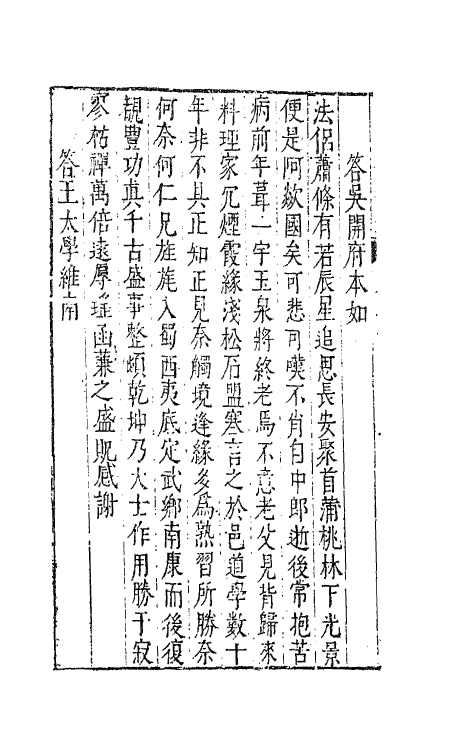 答吳開府本如
法侶蕭條有若辰星追思長安聚首蒲桃林下光景
便是阿歘國矣可悲可嘆不肖自中郎逝後常抱苦
病前年葺一宇玉泉將終老焉不意老父見背歸來
料理家冗煙霞緣淺松石盟寒言之於邑道學數十
年非不具正知正見奈觸境逢緣多爲熟習所勝奈
何奈何仁兄旌旄入蜀西夷底定武鄉南康而後復
覩豐功真千古盛事整頓乾坤乃大士作用勝于寂
寥枯禪萬倍遠辱瑤函蒹之盛貺感謝
答王太學維南